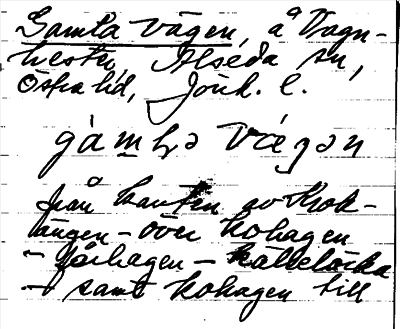 Gamla vägen, å Vagn-
hester, Alseda sn,
Östra hd, Jönk. l.
gàmḷə vǽgən
från kanten av Krok-
ängen - över kohagen
- fårhagen - källelöcka
- samt kohagen till